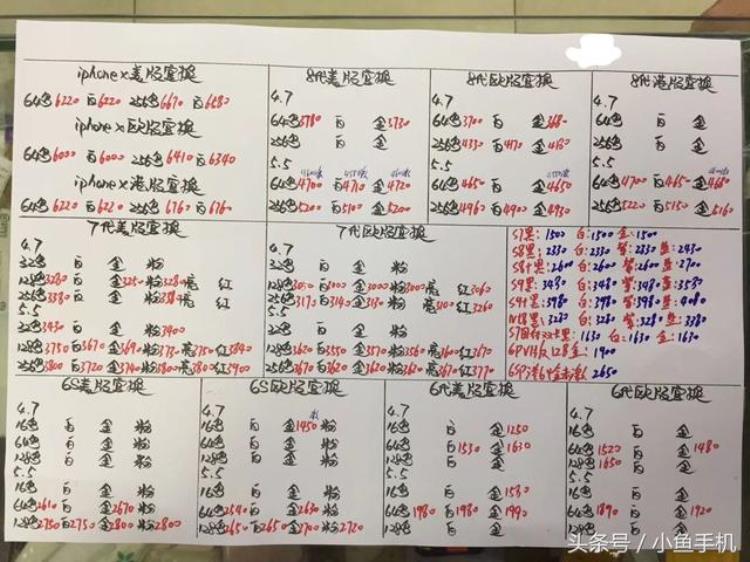 iphone x美版官换
64色6220 白6220 256色6670 白6680
iphone x欧版官换
64色6000 白6000 256色6410 白6340
iphone x港版官换
64色6220 白6220 256色6760 白6760
8代美版官换
4.7
64色3780 白 金3730
256色 白 金
5.5
64色4700 白4710 金4720
256色5200 白5100 金5200
8代欧版官换
4.7
64色3700 白 金368
256色4330 白4170 金4130
5.5
64色4650 白 金4650
256色4960 白4900 金4930
8代港版官换
4.7
64色 白 金
256色 白 金
5.5
64色4700 白4650 金4680
256色5220 白5150 金5160
7代美版官换
4.7
32色 白 金 粉
128色3280 白 金3250 粉3280 亮 红
256色3380 白 金 粉 亮 红
5.5
32色3430 白 金 粉3400
128色3750 白3670 金3690 粉3730 亮3750 红3840
256色3800 白3720 金3740 粉3800 亮3780 红3900
7代欧版官换
4.7
32色 白 金 粉
128色3050 白3000 金3000 粉3000 亮 红3060
256色3170 白3140 金3130 粉 亮3100 红3260
5.5
32色 白 金 粉
128色3620 白3550 金3570 粉3560 亮3600 红3670
256色3670 白3620 金3620 粉3620 亮3670 红3770
S7黑:1500 白:1500 金:1500
S8黑:2330 白:2330 紫:2330 蓝:2430
S8+黑:2600 白:2600 紫:2600 蓝:2700
S9黑:3480 白:3480 紫:3480 蓝:3530
S9+黑:3980 白:3980 紫:3980 蓝:4080
N8黑:3280 白:3280 紫:3280 蓝:3380
1630 白:1630 金:1630
128金:1900
2650
6S美版官换
4.7
16色 白 金 粉
64色 白 金 粉
128色 白 金 粉
5.5
16色 白 金 粉
64色2610 白 金2670 粉
128色2750 白2750 金2800 粉2800
6S欧版官换
4.7
16色 白 金1450 粉
64色 白 金 粉
128色 白 金 粉
5.5
16色 白 金 粉
64色2540 白 金2630 粉
128色2650 白2650 金2700 粉2720
6代美版官换
4.7
16色 白 金1250
64色 白1530 金1630
128色 白 金
5.5
16色 白 金1580
64色1980 白1980 金1990
128色 白 金
6代欧版官换
4.7
16色 白 金
64色1520 白 金1480
128色1650 白 金
5.5
16色 白 金
64色1890 白 金1920
128色 白 金
头条号 / 小鱼手机